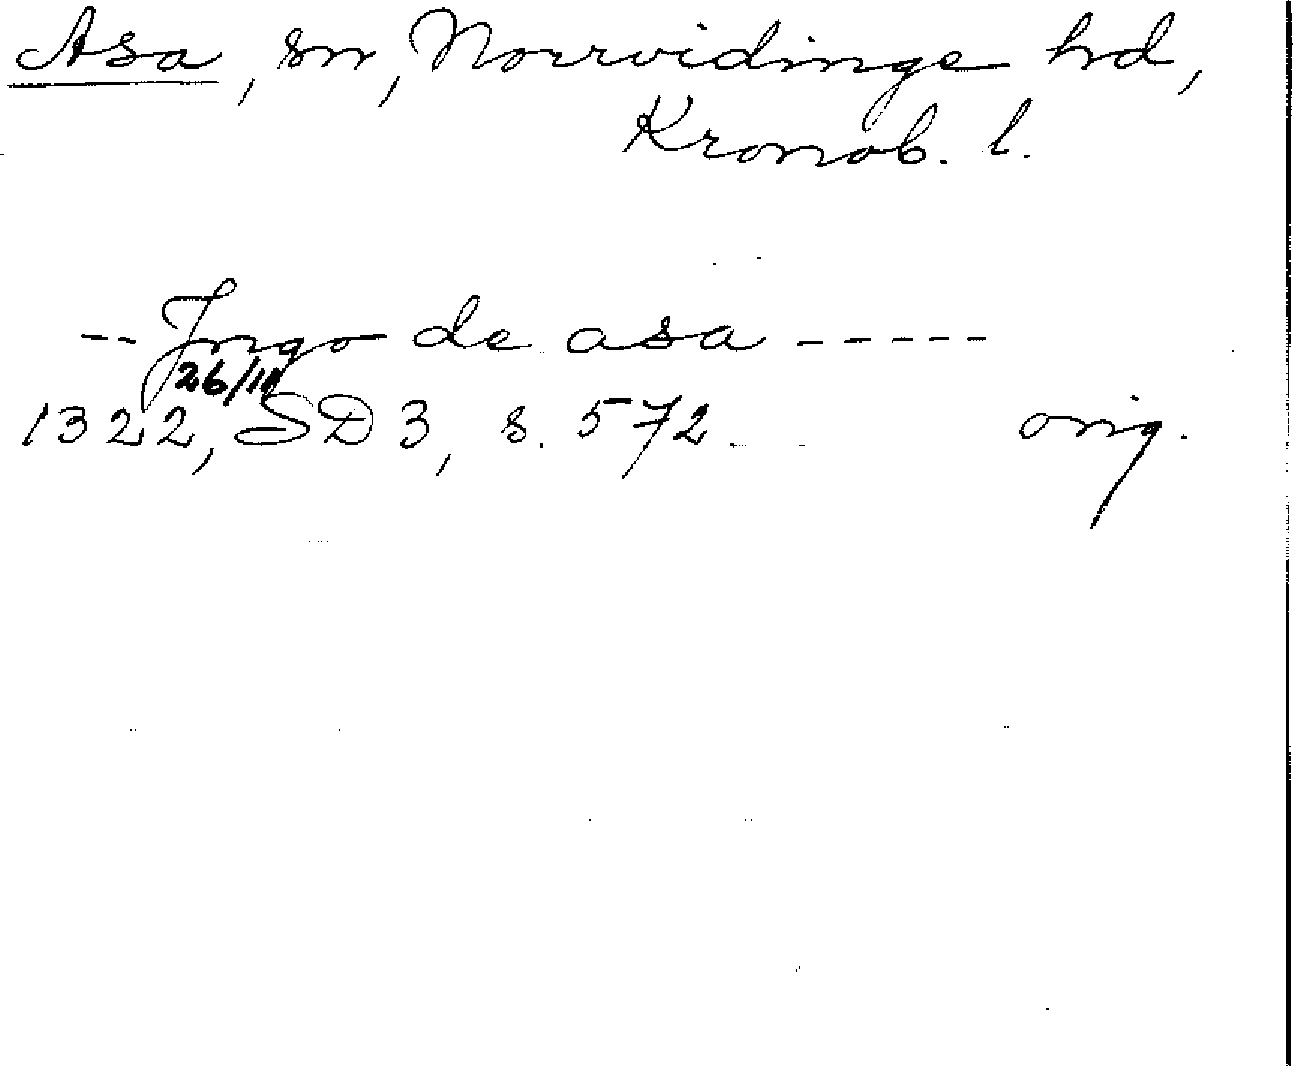 Asa, sn, Norrvidinge hd,
Kronob. l.
-- Ingo de asa -----
26/10
1322, SD 3, s. 572. orig.